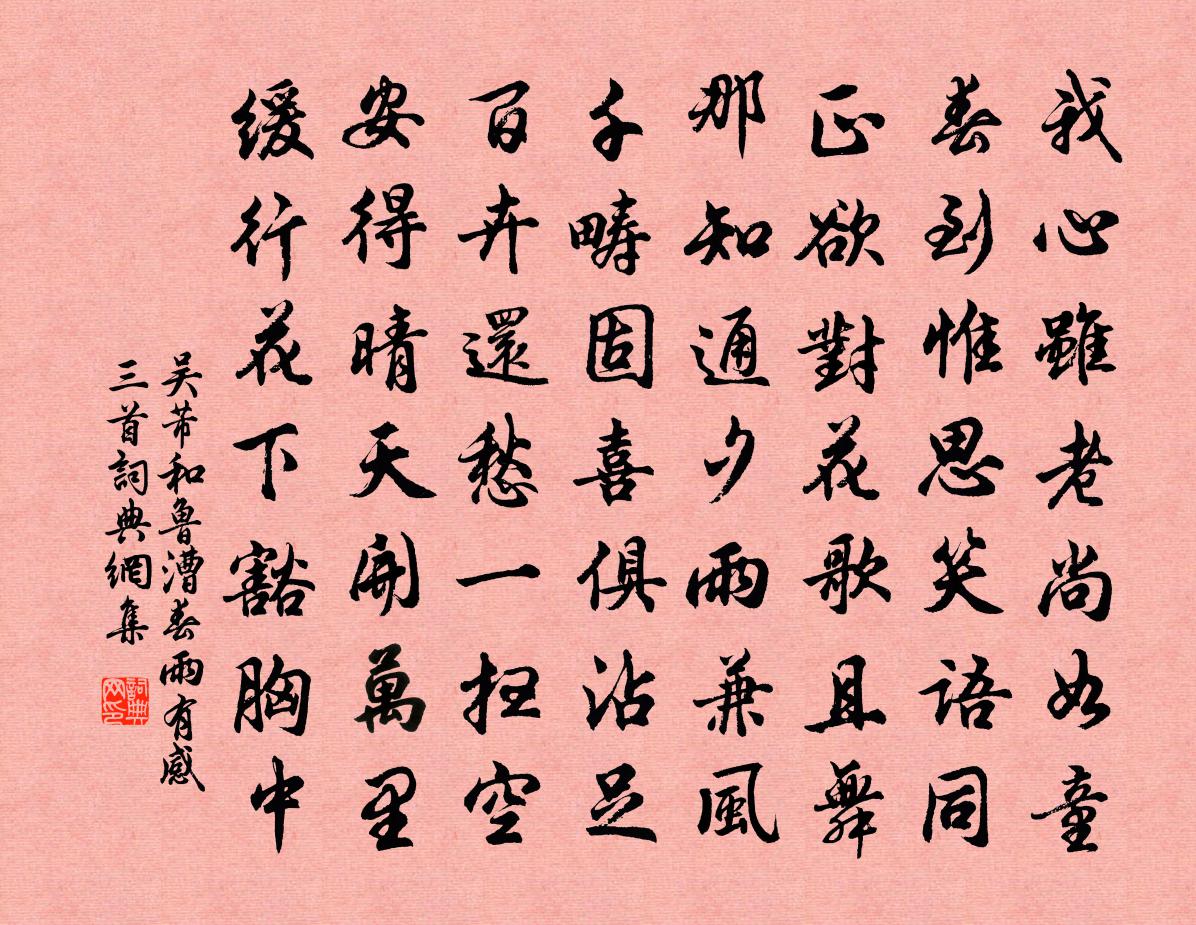 我心雖老尚如童
春到惟思笑語同
正欲對花歌且舞
那知通夕雨兼風
千疇固喜俱沾足
百卉還愁一掃空
安得晴天開萬里
緩行花下豁胸中
吳芾和魯漕春雨有感
三首詞典網集
詞典
网印